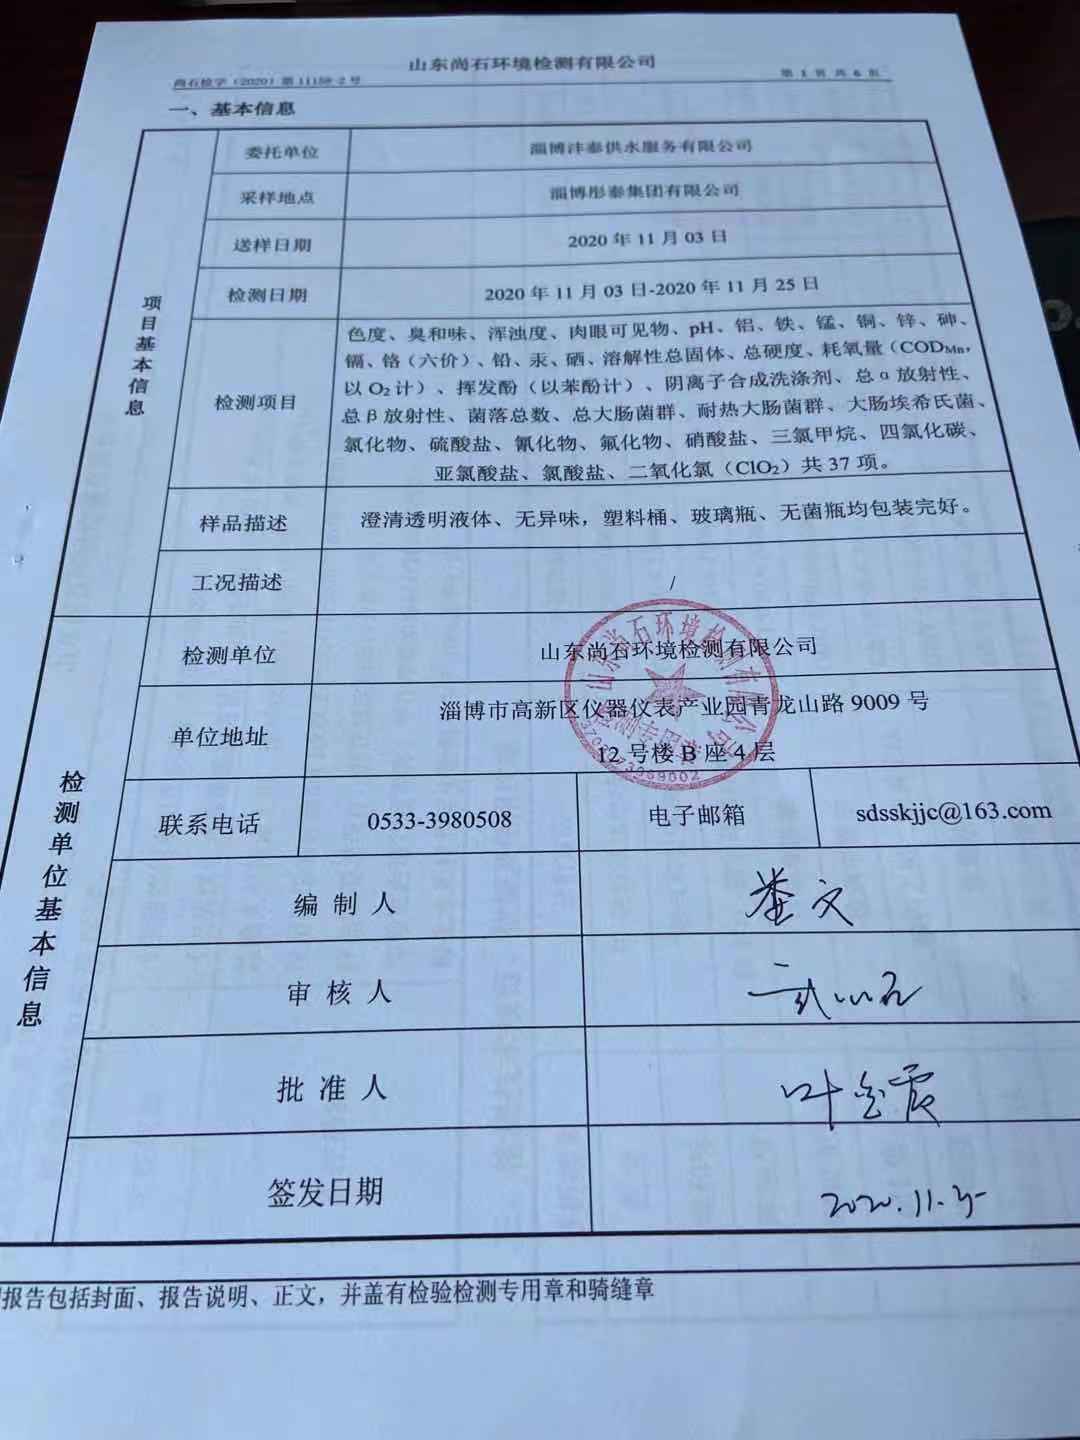 山东尚石环境检测有限公司
尚石检字（2020）第 11159-2 号
第 1 页 共 6 页
一、基本信息
项目基本信息
委托单位
淄博沣泰供水服务有限公司
采样地点
淄博彤泰集团有限公司
送样日期
2020 年 11 月 03 日
检测日期
2020 年 11 月 03 日-2020 年 11 月 25 日
检测项目
色度、臭和味、浑浊度、肉眼可见物、pH、铝、铁、锰、铜、锌、砷、
镉、铬（六价）、铅、汞、硒、溶解性总固体、总硬度、耗氧量（CODMn，
以 O₂ 计）、挥发酚（以苯酚计）、阴离子合成洗涤剂、总 α 放射性、
总 β 放射性、菌落总数、总大肠菌群、耐热大肠菌群、大肠埃希氏菌、
氯化物、硫酸盐、氰化物、氟化物、硝酸盐、三氯甲烷、四氯化碳、
亚氯酸盐、氯酸盐、二氧化氯（ClO₂）共 37 项。
样品描述
澄清透明液体、无异味，塑料桶、玻璃瓶、无菌瓶均包装完好。
工况描述
/
检测单位基本信息
检测单位
山东尚石环境检测有限公司
单位地址
淄博市高新区仪器仪表产业园青龙山路 9009 号
12 号楼 B 座 4 层
山东尚石环境检测有限公司
检测专用章
联系电话
0533-3980508
电子邮箱
sdsskjjc@163.com
编 制 人
审 核 人
批 准 人
签发日期
2020.11.25
报告包括封面、报告说明、正文，并盖有检验检测专用章和骑缝章